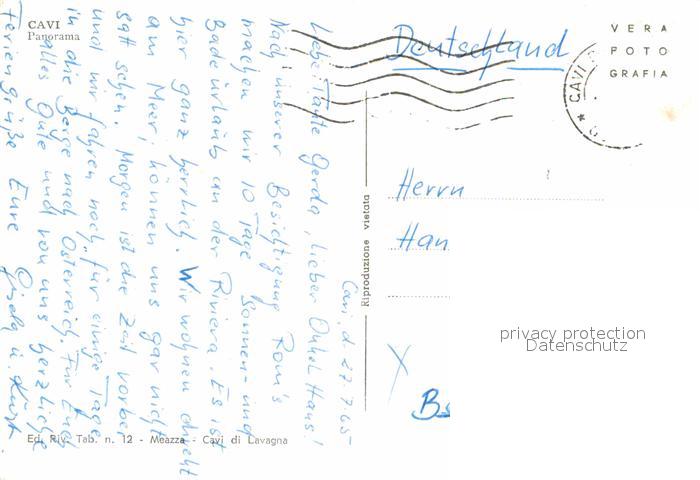 CAVI
Panorama
Deutschland
VERA
FOTO
GRAFIA
CAVI
Cavi, d. 27.7.65
Liebe Tante Gerda, lieber Onkel Hans!
Nach unserer Besichtigung Rom's
machen wir 10 Tage Sonnen- und
Badeurlaub an der Riviera. Es ist
hier ganz herrlich. Wir wohnen direkt
am Meer, können uns gar nicht
satt sehen. Morgen ist die Zeit vorbei
und wir fahren noch für einige Tage
in die Berge nach Österreich. Für Euch
alles Gute und von uns herzliche
Feriengrüße Eure Gisela u. Kurt
Riproduzione vietata
Herrn
Han
Bs
privacy protection
Datenschutz
Ed. Riv. Tab. n. 12 - Meazza - Cavi di Lavagna